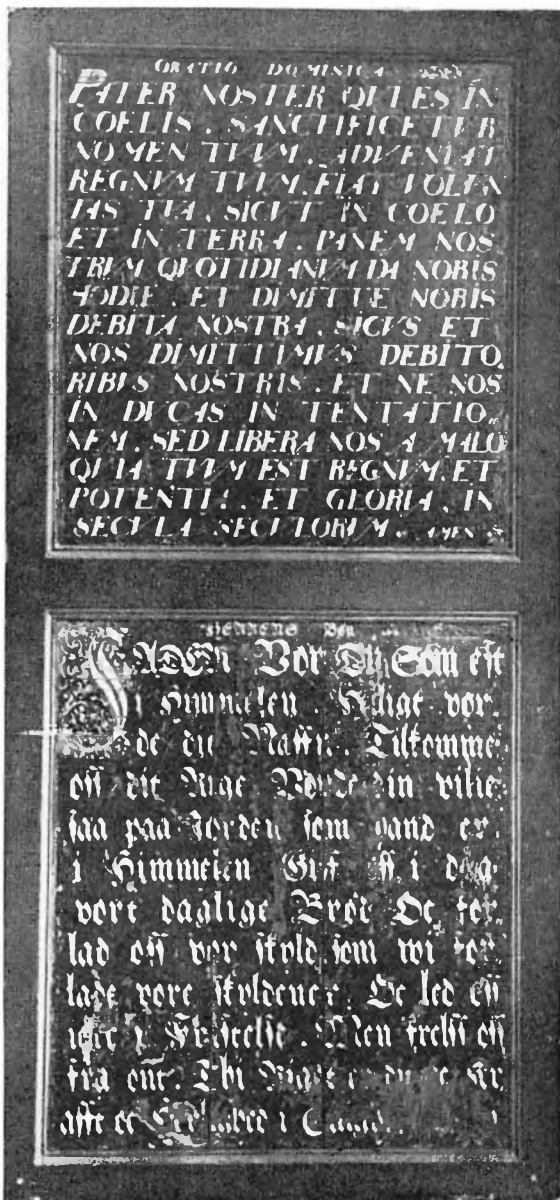 ORATIO DOMINICA
PATER NOSTER QUI ES IN
COELIS. SANCTIFICETVR
NOMEN TVVM. ADVENIAT
REGNVM TVVM. FIAT VOLVN
TAS TVA. SICVT IN COELO
ET IN TERRA. PANEM NOS
TRVM QVOTIDIANVM DA NOBIS
HODIE. ET DIMITTE NOBIS
DEBITA NOSTRA. SICVS ET
NOS DIMITTIMVS DEBITO.
RIBVS NOSTRIS. ET NE NOS
IN DVCAS IN TENTATIO.
NEM. SED LIBERA NOS A MALO
QVIA TVVM EST REGNVM. ET
POTENTIA. ET GLORIA. IN
SECVLA SECVLORVM. AMEN
HERRENS Bøn
FADER Vor Du Som est
i Himmelen. Helige vor.
de dit Naffn. Tilkomme
oss dit Rige Vorde din vilie
saa paa Jorden som hand er
i Himmelen Giff oss i dag
vort daglige Brød Oc for
lad oss vor skyld som wi for
lade vore skyldener. Oc led oss
icke i Fristelse. Men frelss oss
fra ont. Thi Riget er
afft oc i